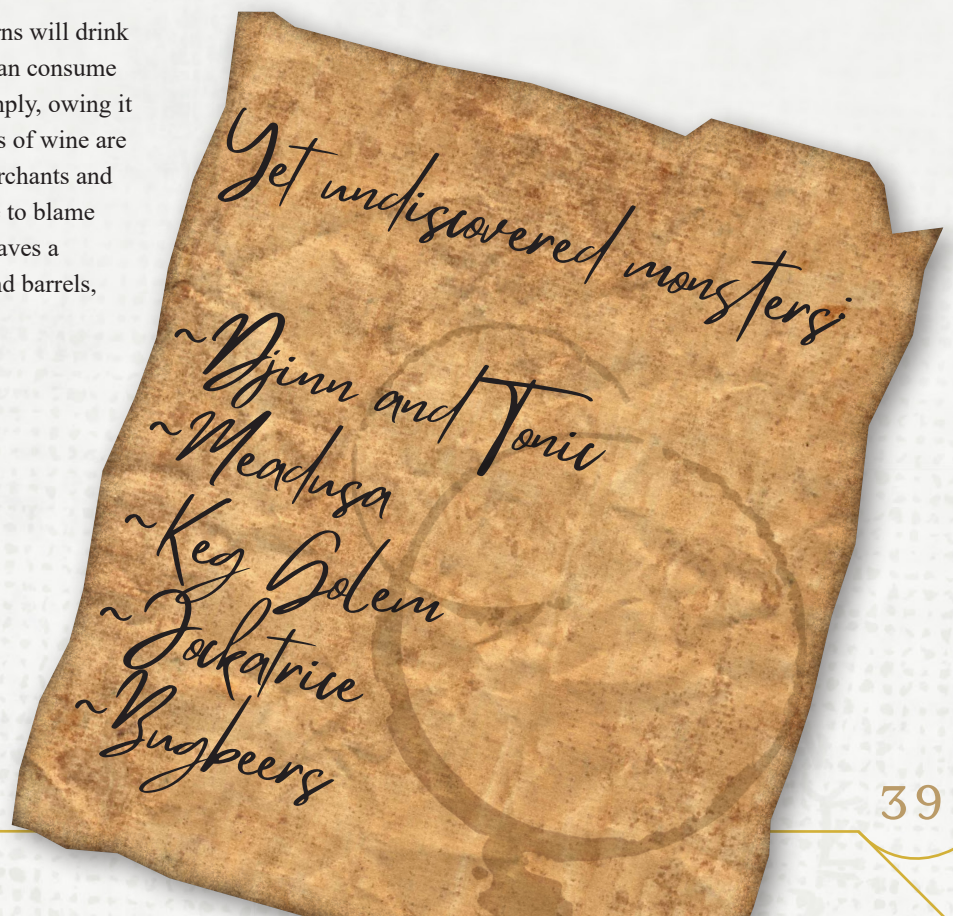 rns will drink
an consume
nply, owing it
s of wine are
rchants and
to blame
aves a
nd barrels,
Yet undiscovered monsters:
~Djinn and Tonic
~Meadusa
~Keg Golem
~Jockatrice
~Bugbeers
39